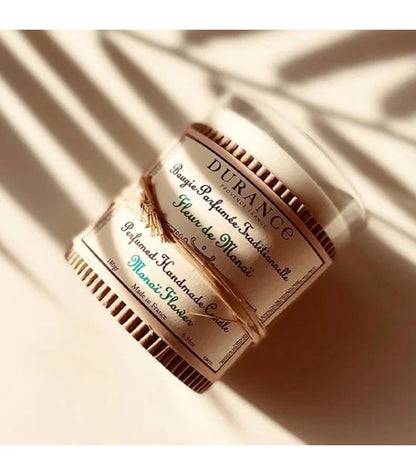 DURANCE
PROVENCE FRANCE
Bougie Parfumée Traditionnelle
Fleur de Manoï
Perfumed Handmade Candle
Manoï Flower
180g
Made in France
6.34oz